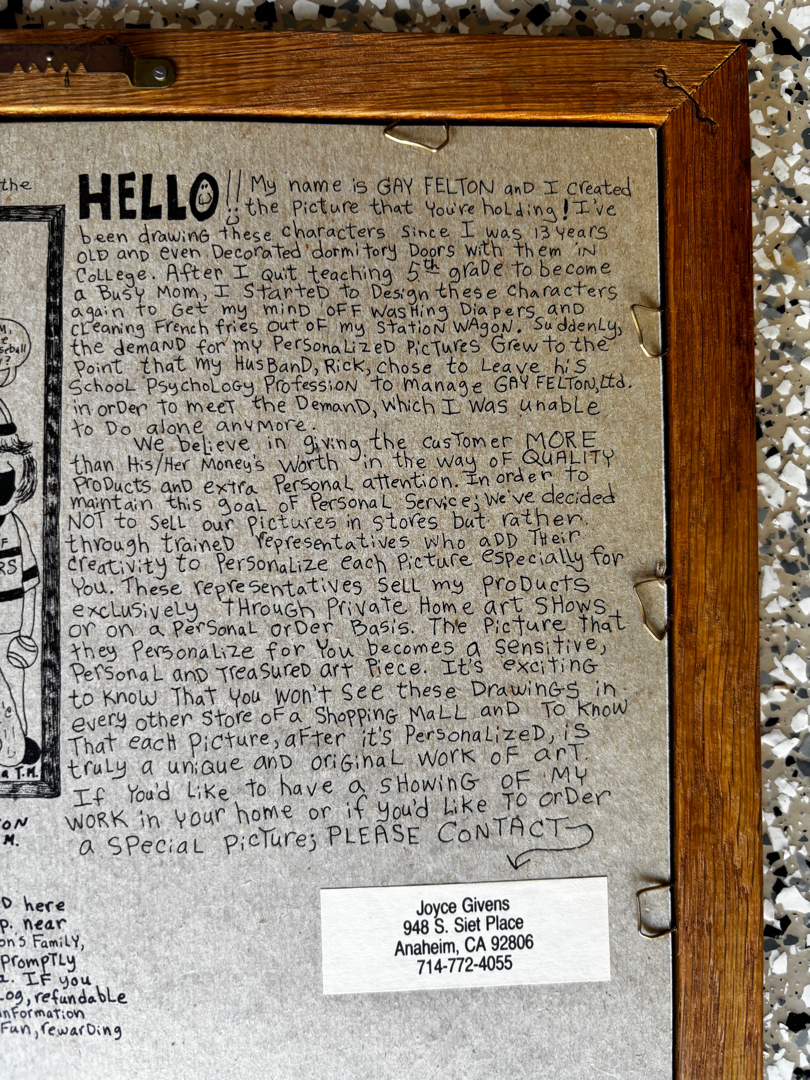 the
HELLO!! My name is GAY FELTON and I created
the picture that you're holding! I've
been drawing these characters since I was 13 years
old and even Decorated dormitory Doors with them in
College. After I quit teaching 5th grade to become
a Busy Mom, I Started to Design these characters
again to Get my mind off washing Diapers and
cleaning French fries out of my Station Wagon. Suddenly,
the demand for my Personalized Pictures Grew to the
Point that my HusBand, Rick, chose to Leave his
School Psychology Profession to manage GAY FELTON, Ltd.
in order to meet the Demand, which I was unable
to Do alone anymore.
We believe in giving the customer MORE
than His/Her Money's Worth in the way of QUALITY
Products and extra Personal attention. In order to
maintain this goal of Personal Service; we've decided
NOT to Sell our pictures in stores but rather
through trained representatives who aDD Their
creativity to Personalize each Picture especially for
You. These representatives Sell my Products
exclusively through Private Home art Shows
or on a Personal order Basis. The Picture that
they Personalize for You becomes a sensitive,
Personal and Treasured art Piece. It's exciting
to know That You won't See these Drawings in
every other Store of a Shopping Mall and To Know
That each Picture, after it's Personalized, is
truly a unique and original work of art.
If You'd Like to have a SHOWING OF MY
WORK in Your home or if you'd Like To order
a Special Picture; PLEASE CONTACT
Joyce Givens
948 S. Siet Place
Anaheim, CA 92806
714-772-4055
M,
e
seball
y?
F
RS
T.M.
ON
M.
D here
p. near
on's Family,
Promptly
a. IF you
Log, refundable
nformation
Fun, rewarding